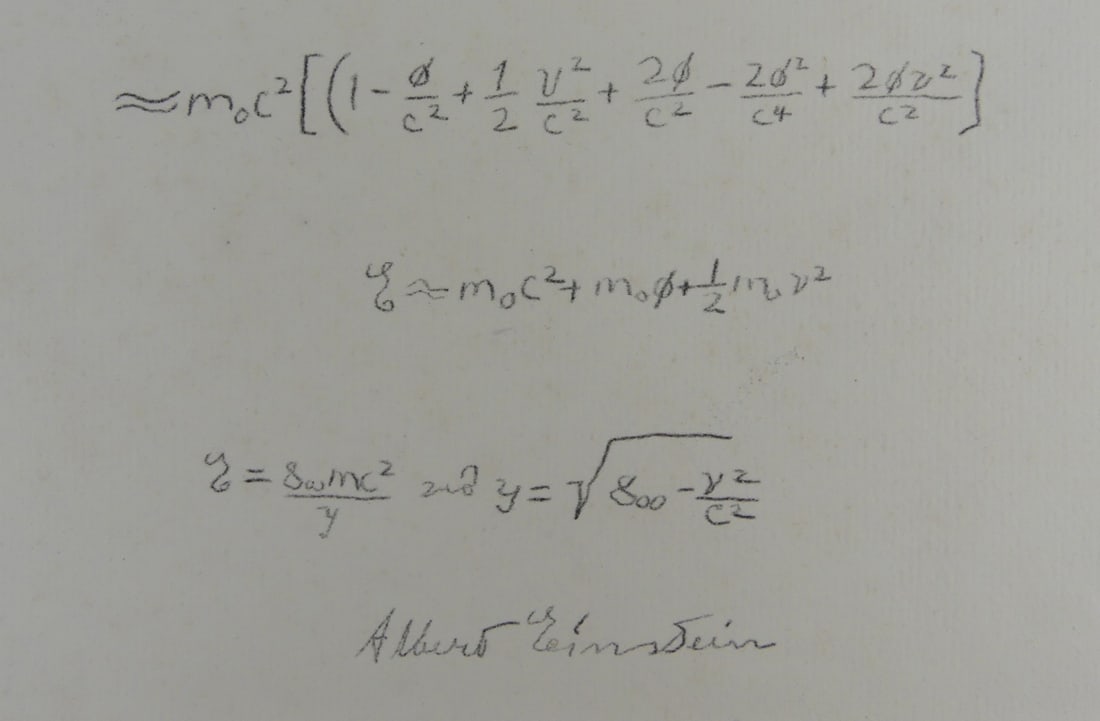 ≈ m₀c² [(1 - ϕ/c² + 1/2 v²/c² + 2ϕ/c² - 2ϕ²/c⁴ + 2ϕv²/c²]
E ≈ m₀c² + m₀ϕ + 1/2 m₀v²
E = g₀₀mc²/y und y = √g₀₀ - v²/c²
Albert Einstein